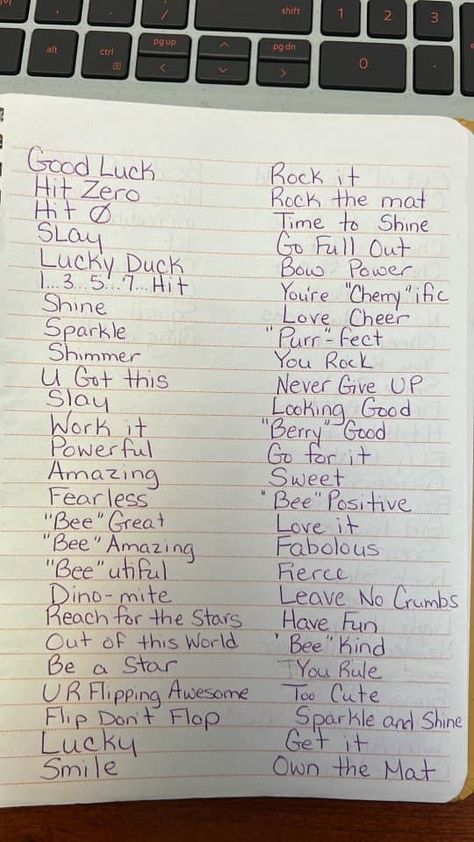 shift
1
2
3
alt
ctrl
pg up
pg dn
0
Good Luck
Hit Zero
Hit Ø
SLay
Lucky Duck
1...3...5...7...Hit
Shine
Sparkle
Shimmer
U Got this
Slay
Work it
Powerful
Amazing
Fearless
"Bee" Great
"Bee" Amazing
"Bee" utiful
Dino-mite
Reach for the Stars
Out of this World
Be a Star
UR Flipping Awesome
Flip Don't Flop
Lucky
Smile
Rock it
Rock the mat
Time to Shine
Go Full Out
Bow Power
You're "Cherry" ific
Love Cheer
"Purr"-fect
You Rock
Never Give UP
Looking Good
"Berry" Good
Go for it
Sweet
"Bee" Positive
Love it
Fabolous
Fierce
Leave No Crumbs
Have Fun
'Bee" Kind
You Rule
Too Cute
Sparkle and Shine
Get it
Own the Mat